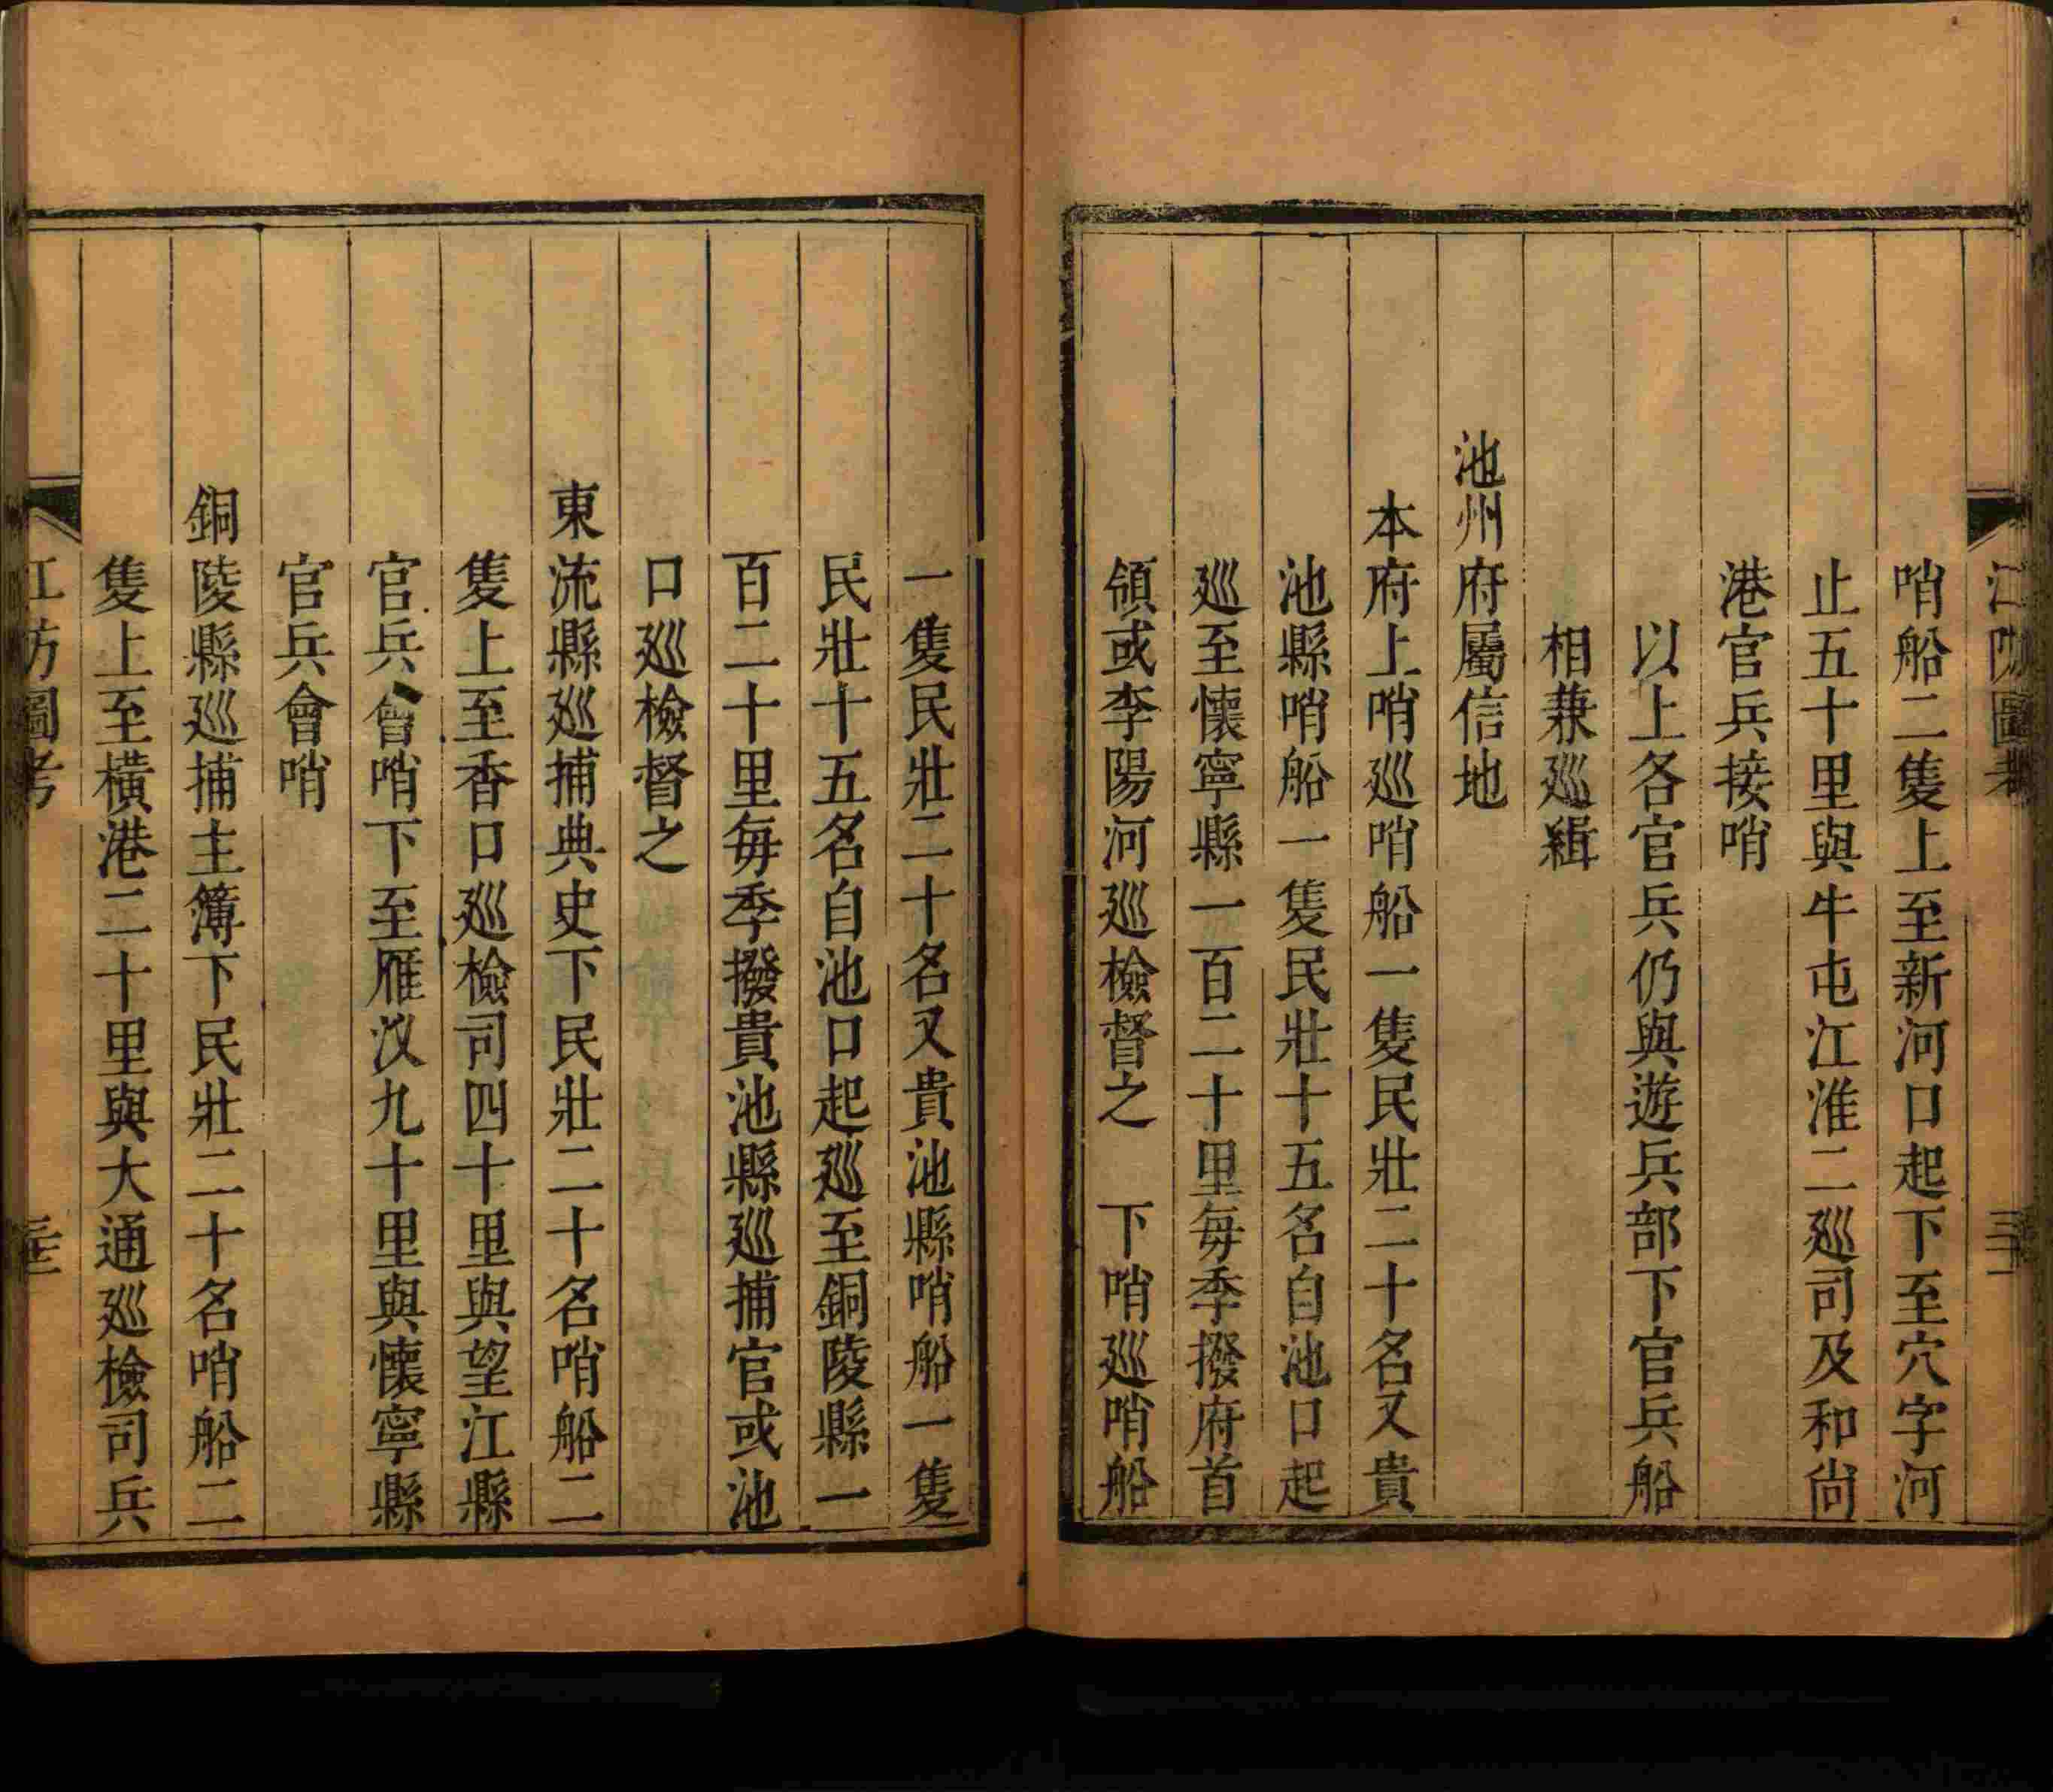 江防圖考
三十一
哨船二隻上至新河口起下至穴字河
止五十里與牛屯江淮二廵司及和尙
港官兵接哨
以上各官兵仍與遊兵部下官兵船
相兼廵緝
池州府屬信地
本府上哨廵哨船一隻民壯二十名又貴
池縣哨船一隻民壯十五名自池口起
廵至懷寧縣一百二十里每季撥府首
領或李陽河廵檢督之　下哨廵哨船
一隻民壯二十名又貴池縣哨船一隻
民壯十五名自池口起廵至銅陵縣一
百二十里每季撥貴池縣廵捕官或池
口廵檢督之
東流縣廵捕典史下民壯二十名哨船二
隻上至香口廵檢司四十里與望江縣
官兵會哨下至雁汊九十里與懷寧縣
官兵會哨
銅陵縣廵捕主簿下民壯二十名哨船二
隻上至橫港二十里與大通廵檢司兵
江防圖考